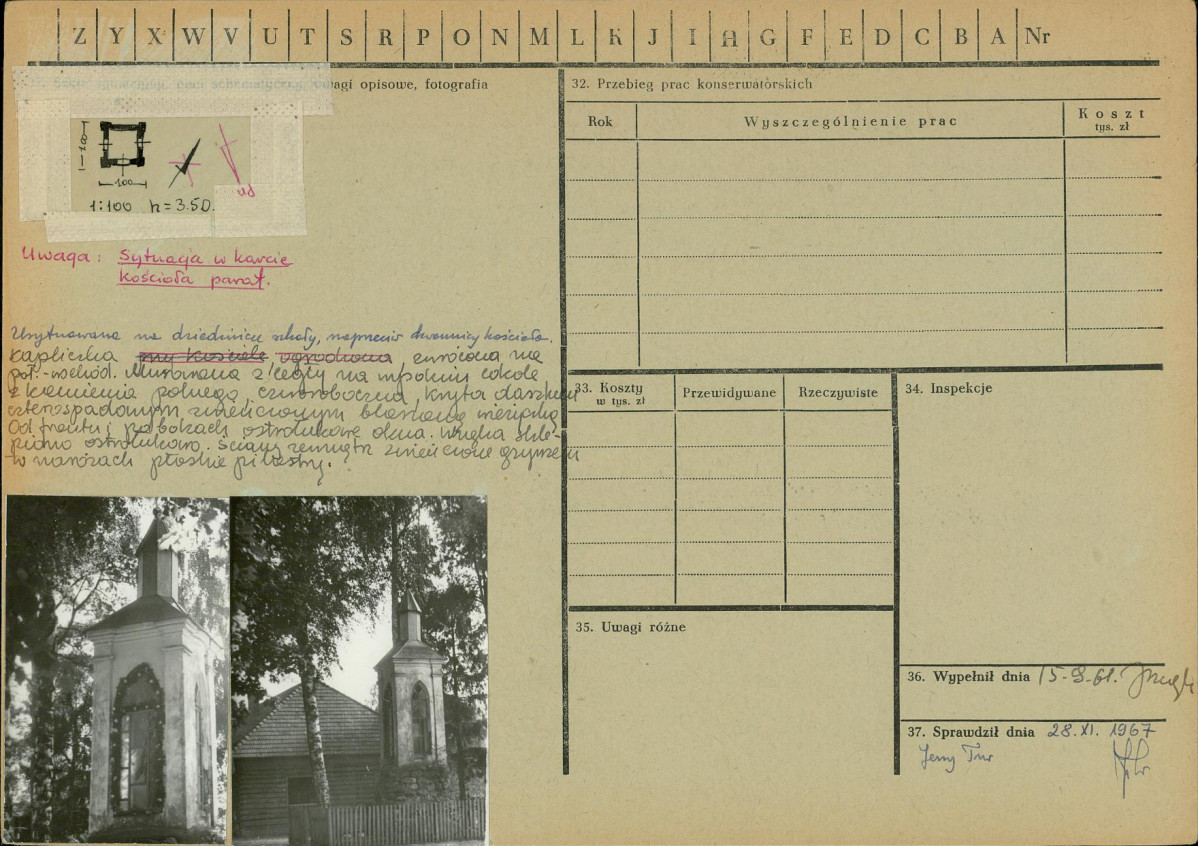 Z Y X W V U T S R P O N M L K J I H G F E D C B A Nr
uwagi opisowe, fotografia
100
1:100 h = 3.50.
Uwaga: Sytuacja w karcie
kościoła paraf.
Usytuowana na dziedzińcu szkoły, naprzeciw dzwonnicy kościoła.
Kapliczka przy kościele ogrodowa, zwrócona na
poł.-wschód. Murowana z cegły na wysokim cokole
z kamienia polnego, czworoboczna, kryta daszkiem
czterospadowym zwieńczonym blaszaną wieżyczką
Od frontu i po bokach ostrołukowe okna. Wnęka skle-
piona ostrołukowo. Ściany zewnątrz zwieńczone gzymsem
w narożach płaskie pilastry.
32. Przebieg prac konserwatorskich
Rok
Wyszczególnienie prac
Koszt
tys. zł
33. Koszty
w tys. zł
Przewidywane
Rzeczywiste
34. Inspekcje
35. Uwagi różne
36. Wypełnił dnia
37. Sprawdził dnia 28.XI. 1967
Jerzy Tur